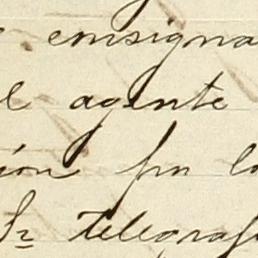 consigna
el agente
ión por lo
Sr telegraf